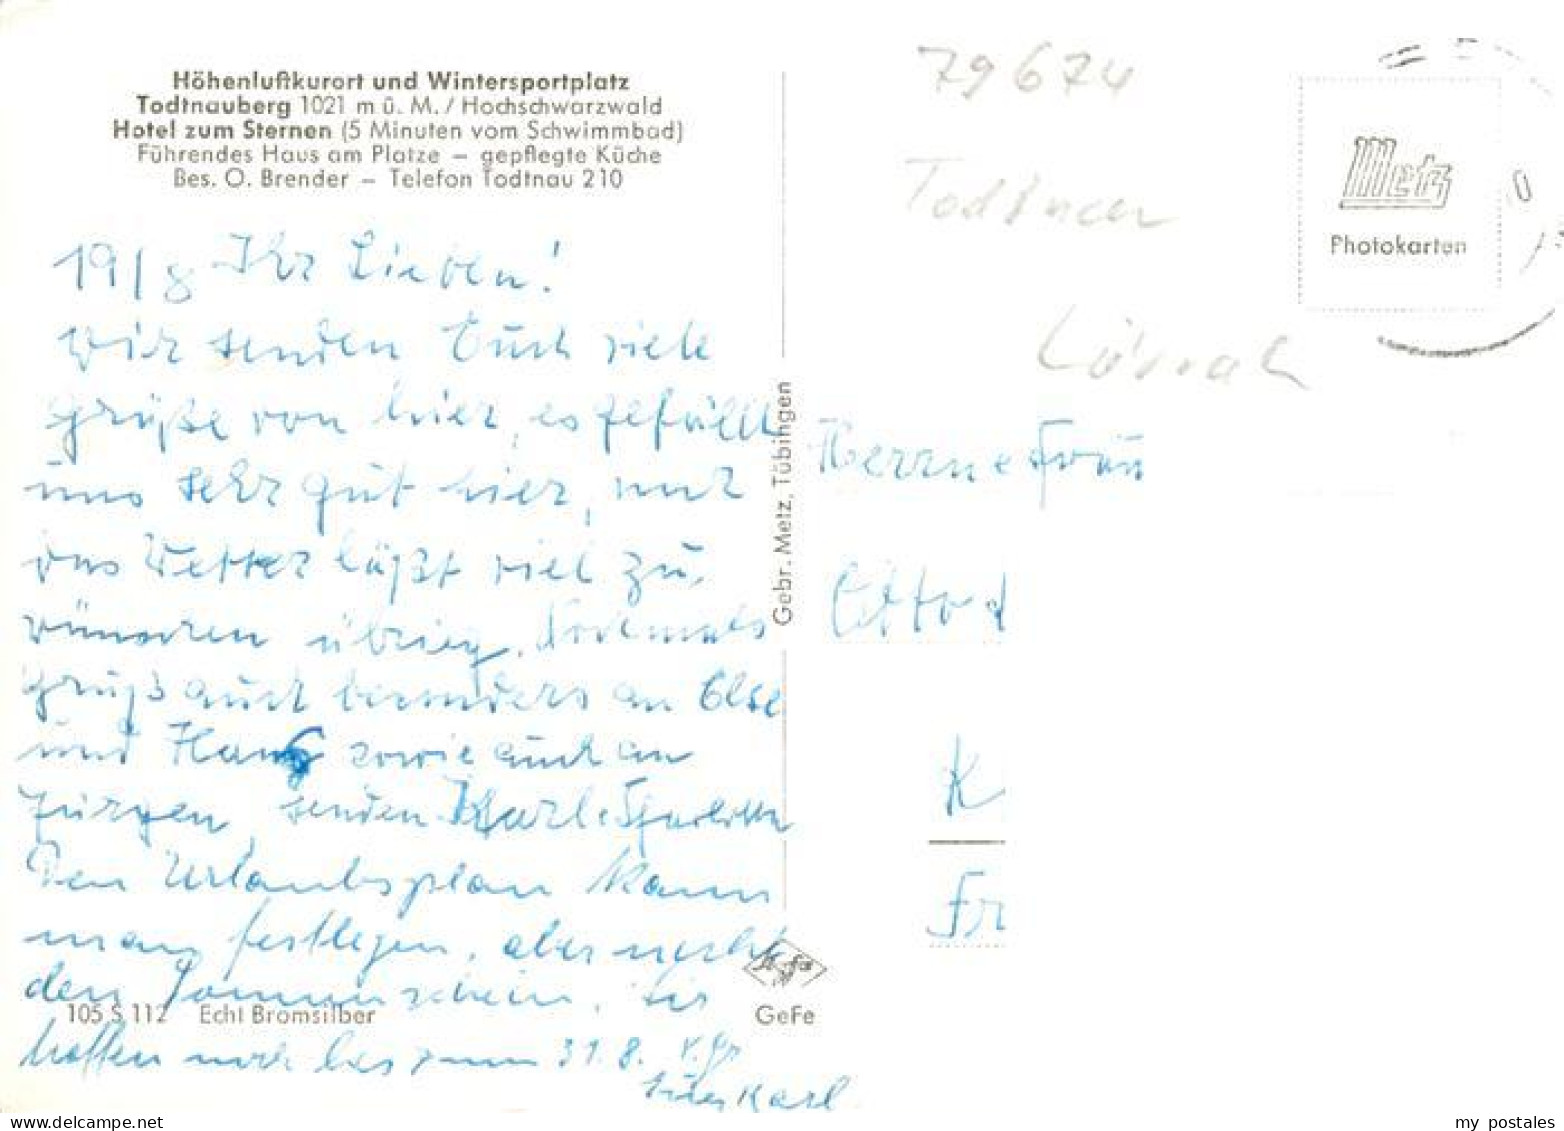 Höhenluftkurort und Wintersportplatz
Todtnauberg 1021 m ü. M. / Hochschwarzwald
Hotel zum Sternen (5 Minuten vom Schwimmbad)
Führendes Haus am Platze – gepflegte Küche
Bes. O. Brender – Telefon Todtnau 210
19/8 Ihr Lieben!
Wir senden Euch viele
Grüße von hier, es gefällt
uns sehr gut hier, nur
das Wetter läßt viel zu
wünschen übrig. Nochmals
Gruß auch besonders an Else
und Hans sowie auch an
Jürgen, senden Karl
Den Urlaubsplan kann
man festlegen, aber nicht
den Sonnenschein. Wir
hoffen noch bis zum 31.8.
Karl
105 S 112 Echt Bromsilber
Gebr. Metz, Tübingen
GeFe
79674
Todtnau
Lörrach
Metz
Photokarten
Herrn e Frau
Otto
K
Fr
my postales